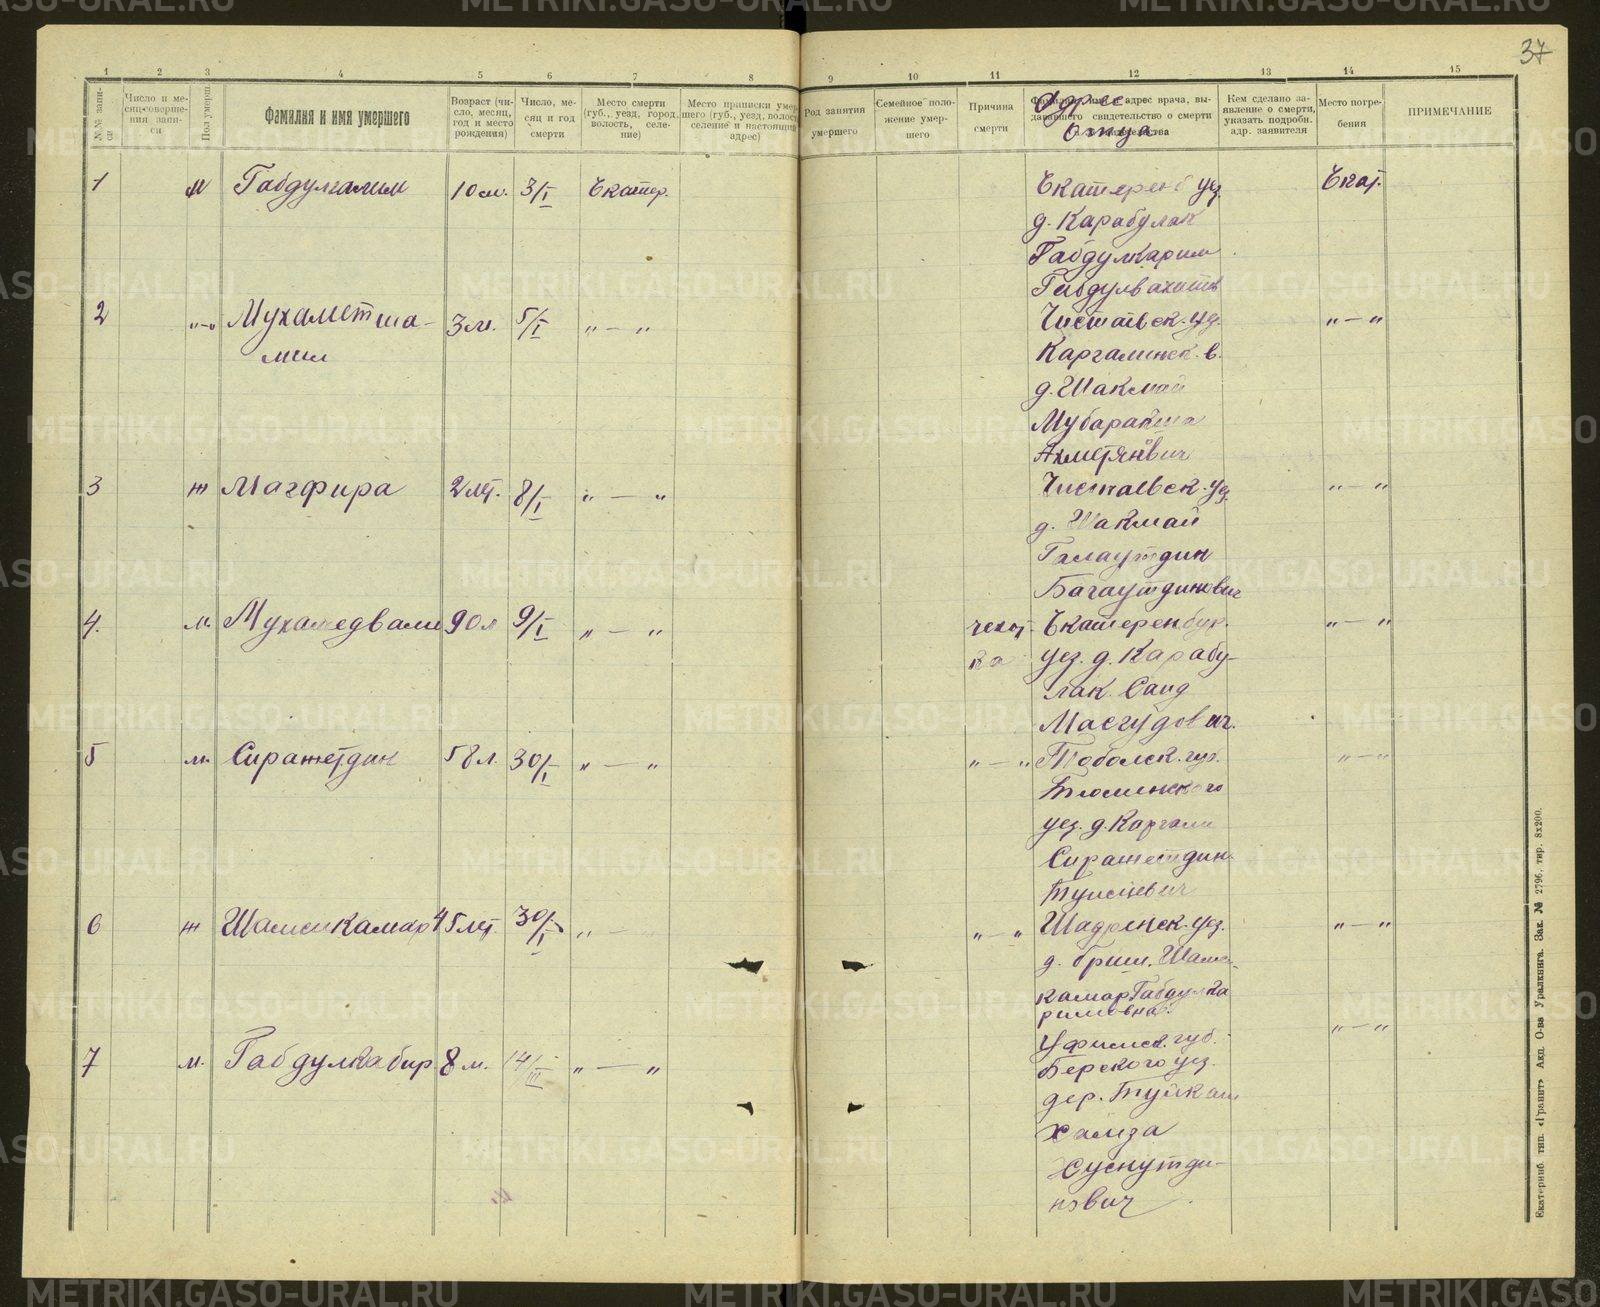 37
1 2 3 4 5 6 7 8 9 10 11 12 13 14 15
№№ записи
Число и месяц совершения записи
Пол умерш.
Фамилия и имя умершего
Возраст (число, месяц, год и место рождения)
Число, месяц и год смерти
Место смерти (губ., уезд, город, волость, селение)
Место приписки умершего (губ., уезд, волость селение и настоящий адрес)
Род занятия умершего
Семейное положение умершего
Причина смерти
Адрес отца
Кем сделано заявление о смерти, указать подробн. адр. заявителя
Место погребения
ПРИМЕЧАНИЕ
1 м Габдулгалим 10 м. 3/I Екатер. Екатеренб уез. Екат.
д. Карабулак
Габдулкарим
Габдулвахитв
2 "–" Мухаметша- 3 м. 5/I " — " Чистапвск. уд. " — "
мил Каргалинск. в.
д. Шакмай
Мубаракша
Ахметянвич
3 ж Магфира 2 лет. 8/I " — " Чистапвск. уд. " — "
д. Шакмай
Галаутдин
Багаутдинович
4. м. Мухамедвали 90 л 9/I " — " чехот- Екатеренбур. " — "
ка уез. д. Карабу-
лак. Саид
Масгудович.
5 м. Сиражетдин 58 л. 30/I " — " " — " Тоболск. губ. " — "
Тюменского
уез. д. Каргали
Сиражетдин
6 ж Шамсикамар 45 лет. 30/I " — " " — " Шадринск. уез. " — "
д. Шамси-
камар Габдулка
римовна.
7 м. Габдулкабир 8 м. 14/III " — " Уфимск. губ. " — "
Берского уез.
дер.
Хамза
Хуснутди-
нович
Екатеринб. тип. «Гранит» Акц. О-ва Уралкнига. Зак. № 2796. тир. 8х200.
METRIKI.GASO-URAL.RU